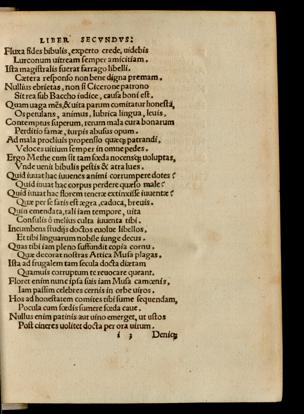 LIBER SECVNDVS:
Fluxa fides bibulis, experto crede, uidebis
Lurconum uitream semper amicitiam.
Ista magistralis fuerat farrago libelli.
Cætera responso non bene digna premam.
Nullius ebrietas, non si Cicerone patrono
Sit rea sub Baccho iudice, causa boni est.
Quam uaga mēs, & uita parum comitatur honesta,
Os petulans, animus, lubrica lingua, leuis.
Contemptus superum, rerum mala cura bonarum
Perditio famæ, turpis abusus opum.
Ad mala procliuis propenso quæq; patrandi,
Veloces uitium semper in omne pedes.
Ergo Methe cum sit tam fœda nocensq; uoluptas,
Vnde uenit bibulis pestis & atra lues.
Quid iuuat hæc iuuenes animi corrumpere dotes?
Quid iuuat hac corpus perdere quæso male?
Quid iuuat hac florem teneræ extinxisse iuuentæ?
Quæ per se satis est ægra, caduca, breuis.
Quin emendata, tali iam tempore, uita
Consulis ô melius culta iuuenta tibi.
Incumbens studijs doctos euolue libellos,
Et tibi linguarum nobile iunge decus.
Quas tibi iam pleno suffundit copia cornu,
Quæ decorat nostras Attica Musa plagas.
Ista ad frugalem tam secula docta diætam
Quamuis corruptum te reuocare queant.
Floret enim nunc ipsa suis iam Musa camœnis,
Iam passim celebres cernis in orbe uiros.
Hos ad honestatem comites tibi sume sequendam,
Pocula cum sordis sumere sœda caue.
Nullus enim patinis aut uino emerget, ut ustos
Post cineres uolitet docta per ora uirum.
i 3 Deniq;